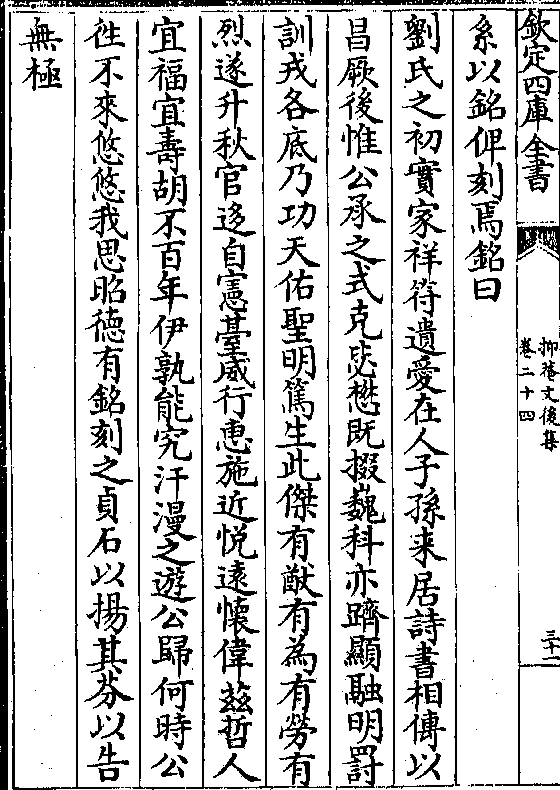 欽定四庫全書
抑菴文後集
卷二十四
三十一
系以銘俾刻焉銘曰
劉氏之初實家祥符遺愛在人子孫来居詩書相傳以
昌厥後惟公承之式克毖懋既掇巍科亦躋顯融明罰
訓戎各底乃功天佑聖明篤生此傑有猷有為有勞有
烈遂升秋官迻自憲臺威行惠施近悅遠懷偉茲哲人
宜福宜壽胡不百年伊孰能究汗漫之遊公歸何時公
徃不來悠悠我思昭德有銘刻之貞石以揚其芬以告
無極